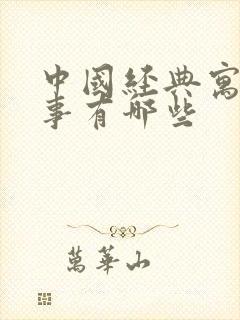 中國經典寓
事有哪些
萬華山